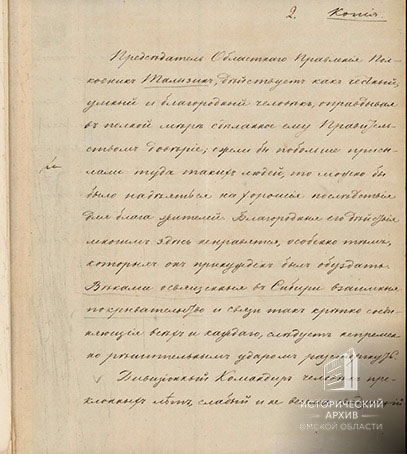 2. Копія.
Председатель Областнаго Правленія Пол-
ковникъ Тализинъ, действуетъ какъ честный,
умный и благородный человекъ, оправдывая
въ полной мѣрѣ сделанное ему Правитель-
ствомъ довѣріе; если бы побольше присы-
лали туда такихъ людей, то можно бы
было надѣяться на хорошія последствія
для блага жителей. Благородныя его действія
многимъ здѣсь не нравятся, особенно темъ,
которыхъ онъ принужденъ былъ обуздать
Вѣками освященныя въ Сибири взаимныя
покривательства и связи такъ крепко соеди-
няющія всѣхъ и каждаго, следуетъ непремен-
но решительнымъ ударомъ разсечь
Дивизіонный Командиръ человекъ пре-
клонныхъ летъ, слабый и не
ИСТОРИЧЕСКИЙ
АРХИВ
ОМСКОЙ ОБЛАСТИ